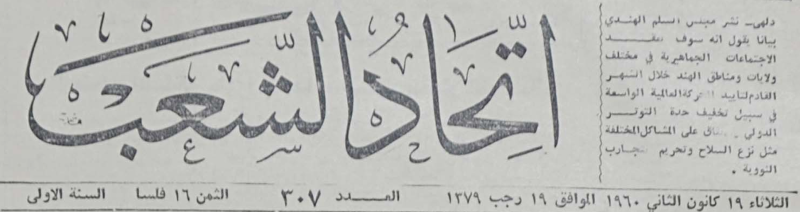 اتّحاد الشّعب
دلهي ـ نشر مجلس السلم الهندي
بيانا يقول انه سوف تنعقد
الاجتماعات الجماهيرية في مختلف
ولايات ومناطق الهند خلال الشهر
القادم لتأييد الحركة العالمية الواسعة
في سبيل تخفيف حدة التوتر
الدولي على المشاكل المختلفة
مثل نزع السلاح وتحريم التجارب
النووية .
الثلاثاء ١٩ كانون الثاني ١٩٦٠ الموافق ١٩ رجب ١٣٧٩ العـــدد ٣٠٧ الثمن ١٦ فلسا السنة الاولى